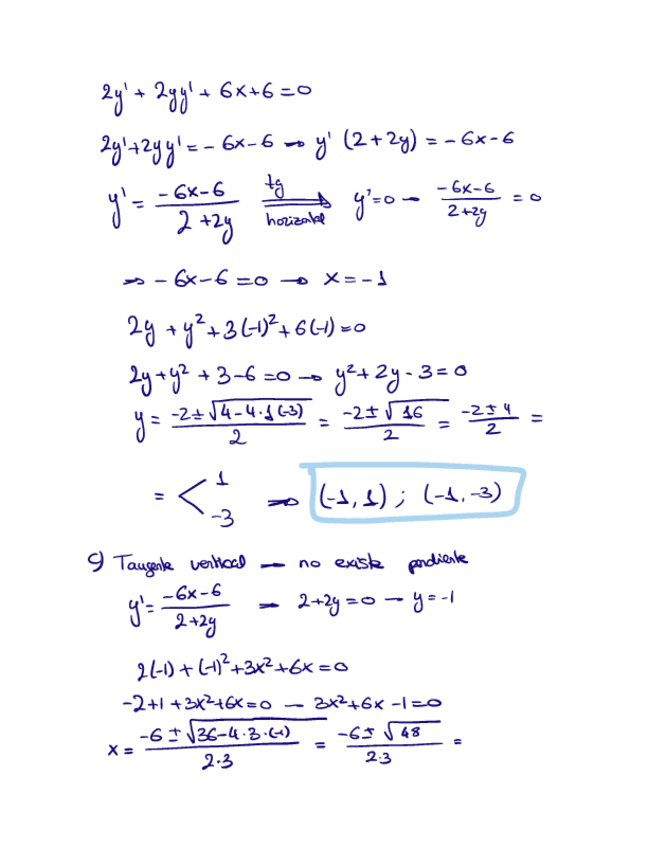 2y' + 2yy' + 6x+6=0
2y'+2yy' = - 6x-6 → y' (2+2y) = -6x-6
y' = (-6x-6)/(2+2y) tg horizontal ⟹ y'=0 — (-6x-6)/(2+2y) = 0
⇒ -6x-6=0 → x=-1
2y + y²+3(-1)²+6(-1)=0
2y+y² +3-6=0 → y²+2y-3=0
y = (-2±√(4-4·1(-3)))/2 = (-2±√16)/2 = (-2±4)/2 =
= < 1 -3 ⇒ (-1,1) ; (-1,-3)
c) Tangente vertical — no existe pendiente
y' = (-6x-6)/(2+2y) → 2+2y=0 — y=-1
2(-1) + (-1)²+3x²+6x=0
-2+1+3x²+6x=0 — 3x²+6x-1=0
x = (-6±√(36-4·3·(-1)))/(2·3) = (-6±√48)/(2·3) =